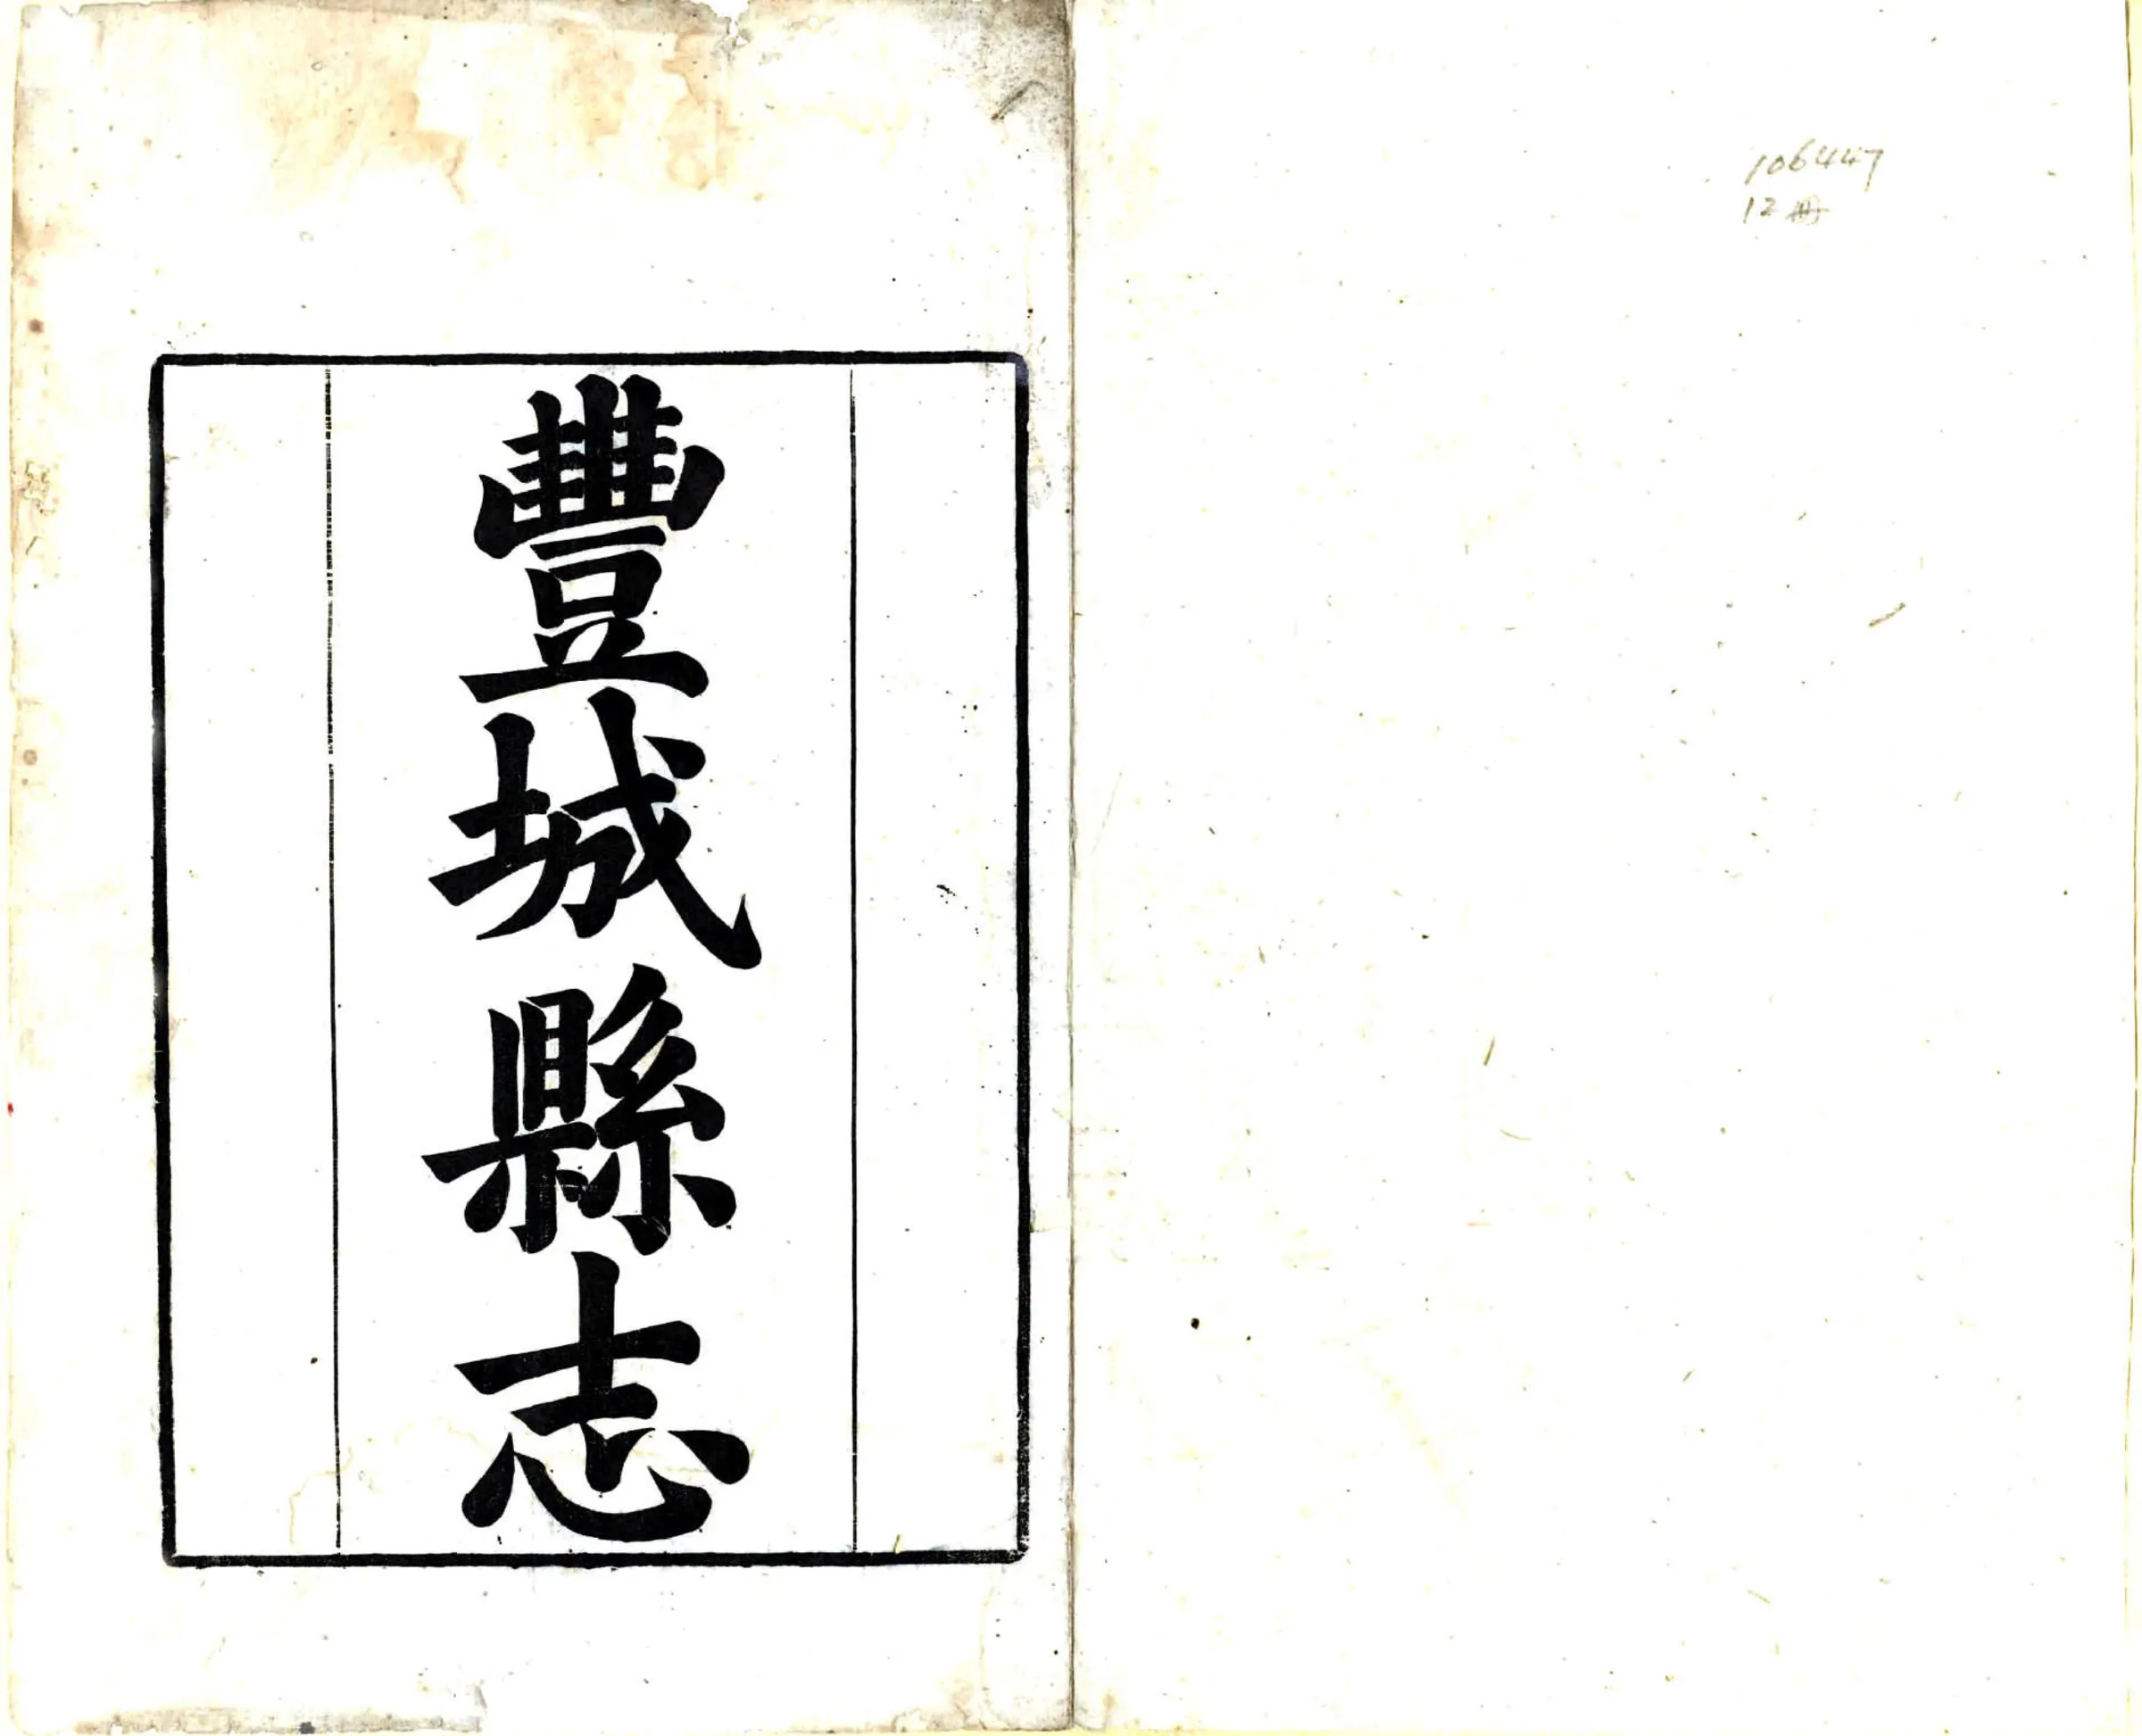 106447
12冊
豐城縣志